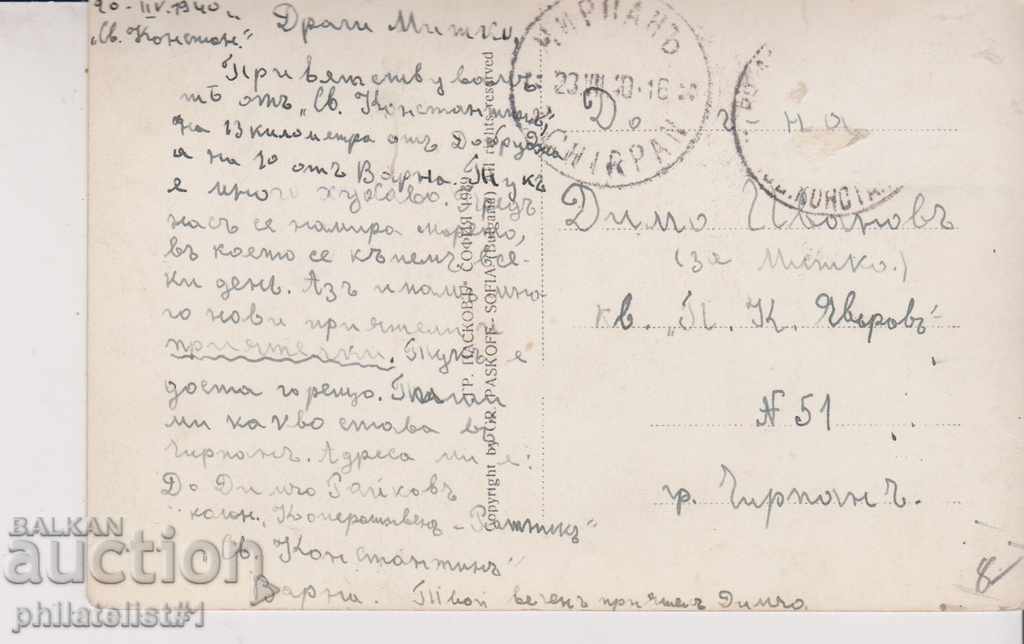 20-IIV.1940 г.
"Св. Констан."
Драги Митко,
Приветствувамъ
тѣ отъ "Св. Константинъ",
на 13 километра отъ Добруджа
а на 10 отъ Варна. Тукъ
е много хубаво. Предъ
насъ се намира морето,
въ което се къпемъ все-
ки день. Азъ имамъ мно-
го нови приятели и
приятелки. Тукъ е
доста горещо. Пиши
ми какво става въ
Чирпанъ. Адреса ми е:
До Димчо Райковъ
колон. "Кооперативенъ - Ратникъ"
"Св. Константинъ"
Варна. Твой веченъ приятель Димчо.
ГР. ПАСКОВЪ - СОФИЯ
Copyright by GR. PASKOFF - SOFIA (Bulgaria) All rights reserved
ЧИРПАНЪ
23.VII.40-16
CHIRPAN
КОНСТА
До г-на
Димо Ивановъ
(за Митко.)
кв. "П. К. Яворовъ"
N 51
гр. Чирпанъ.
8
BALKAN
auction
philatelist#1